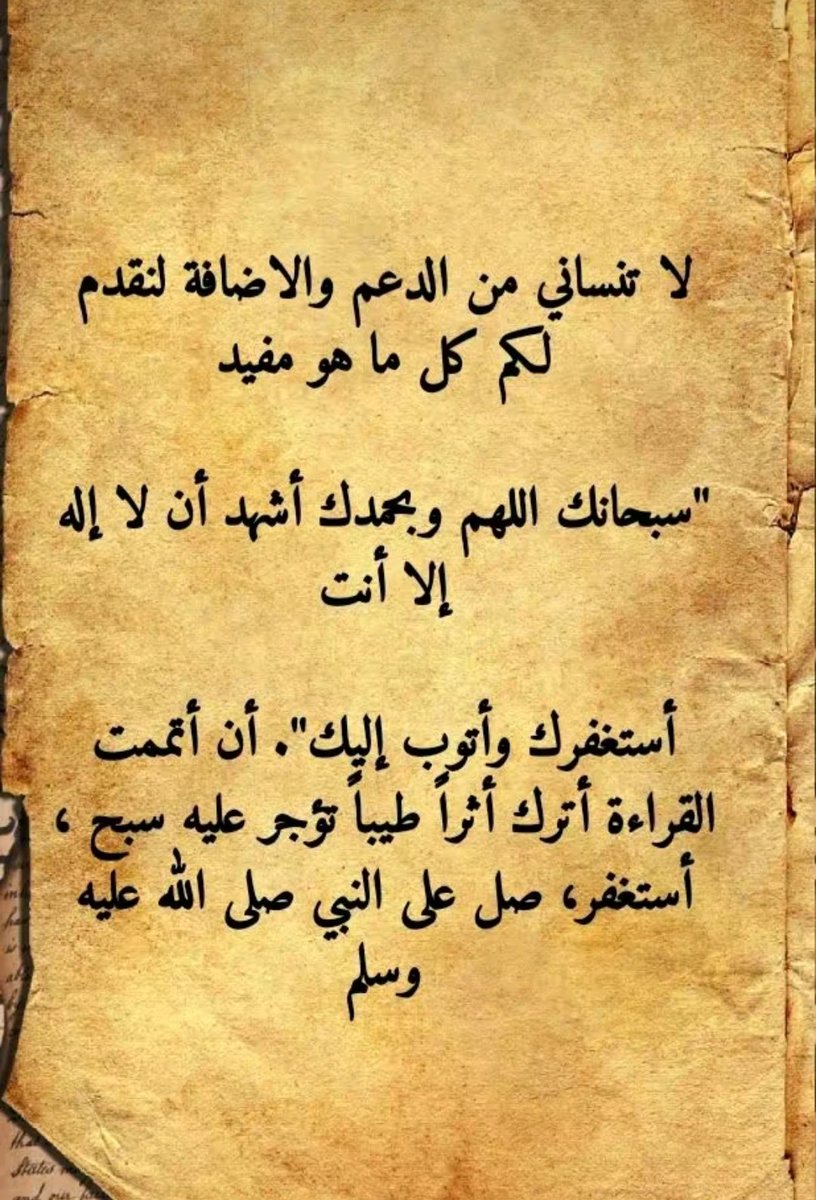 لا تنساني من الدعم والاضافة لنقدم
لكم كل ما هو مفيد
"سبحانك اللهم وبحمدك أشهد أن لا إله
إلا أنت
أستغفرك وأتوب إليك". أن أتممت
القراءة أترك أثراً طيباً تؤجر عليه سبح ،
أستغفر، صل على النبي صلى الله عليه
وسلم